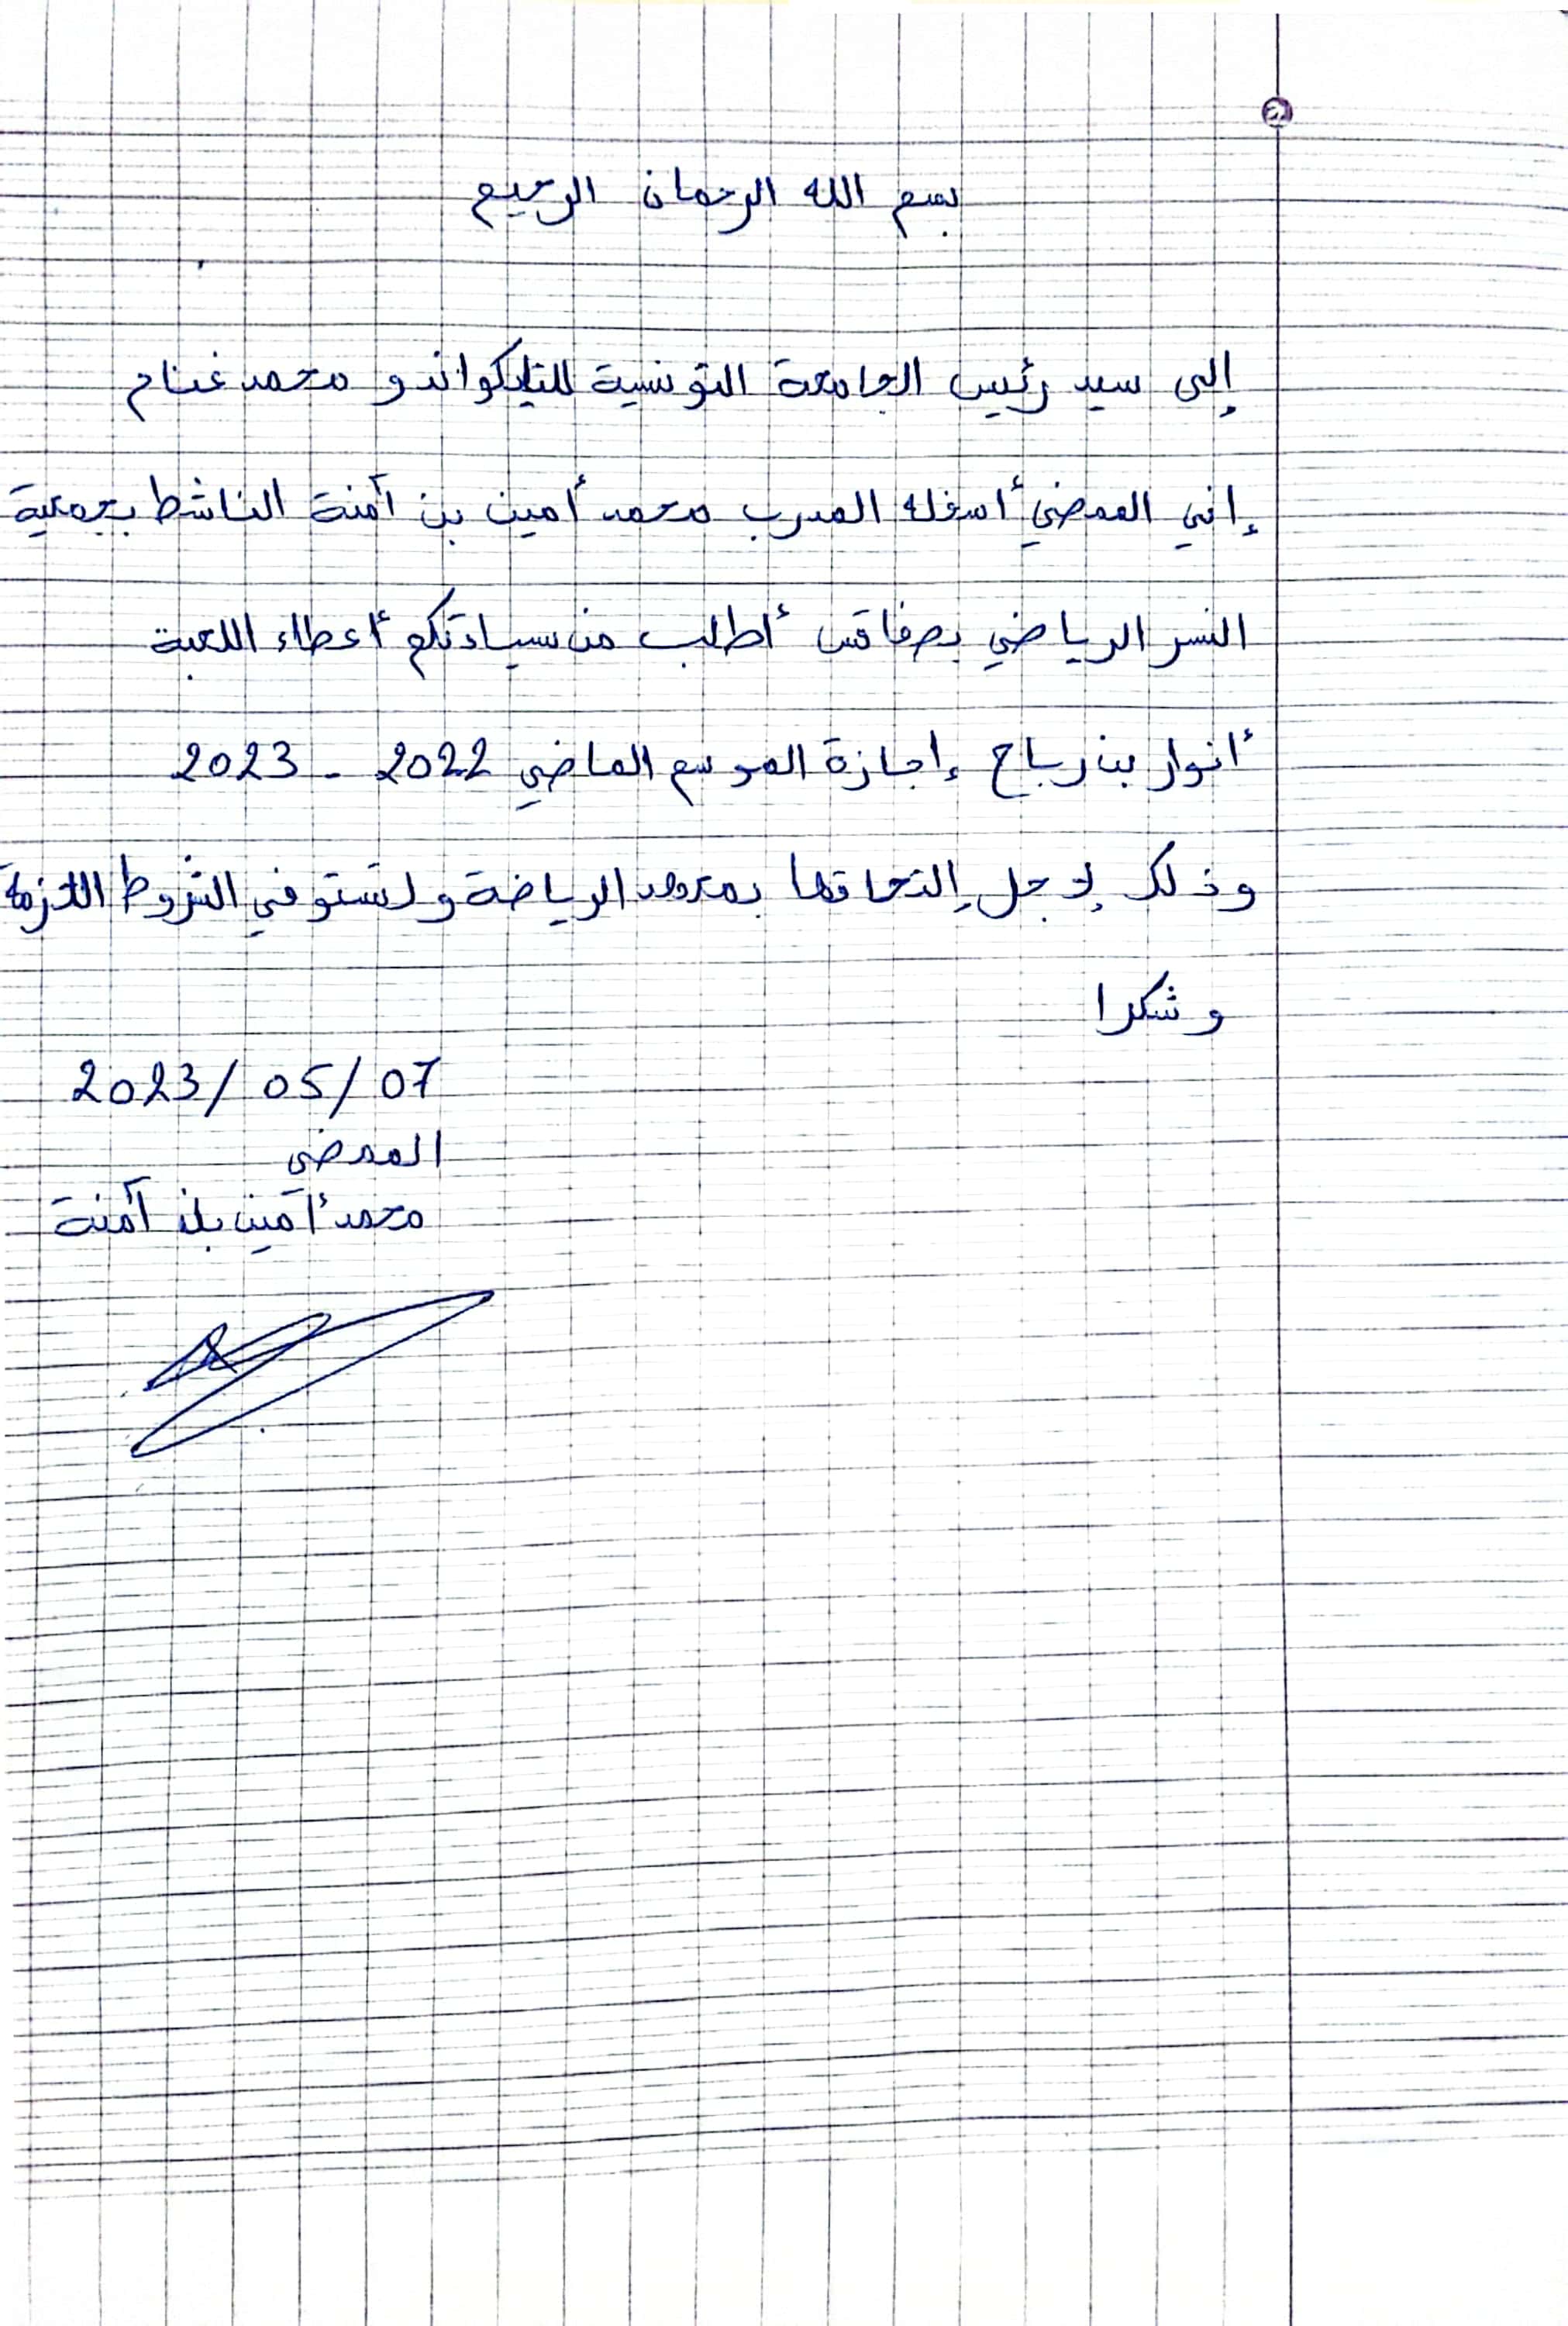 بسم الله الرحمان الرحيم
إلى سيد رئيس الجامعة التونسية للتايكواندو محمد غنام
إني الممضي أسفله المدرب محمد أمين بن آمنة الناشط بجمعية
النسر الرياضي بصفاقس أطلب من سيادتكم أعطاء اللعبة
أنوار بن رباح إجازة الموسم الماضي 2022 - 2023
وذلك لإجل إلتحاقها بمعهد الرياضة ولتستوفي الشروط اللازمة
وشكرا
2023/05/07
الممضي
محمد أمين بن آمنة